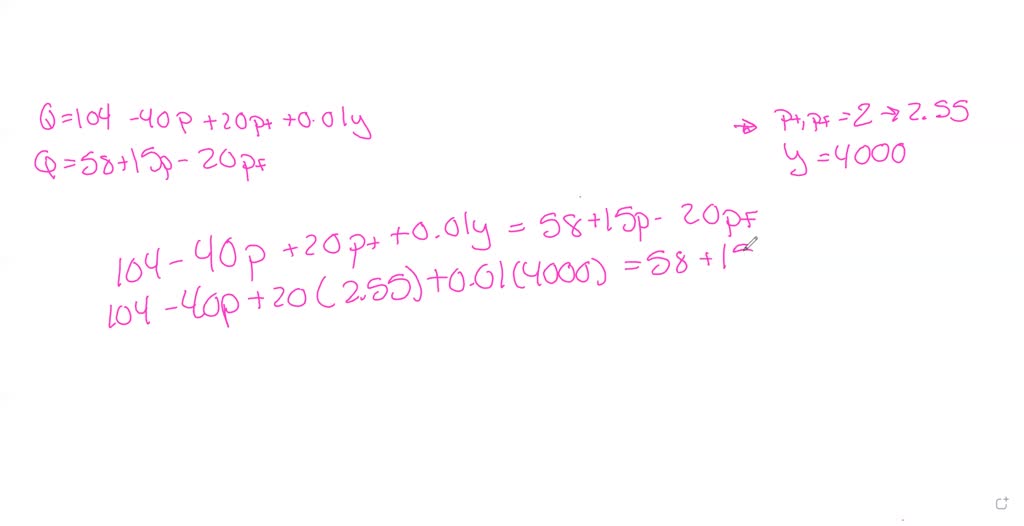 Q=104 -40p +20pt +0.01y
Q=58+15p- 20pf
→ pt,pf =2→2.55
y =4000
104-40p+20pt+0.01y = 58+15p- 20pf
104-40p+20(2.55)+0.01(4000) =58+1